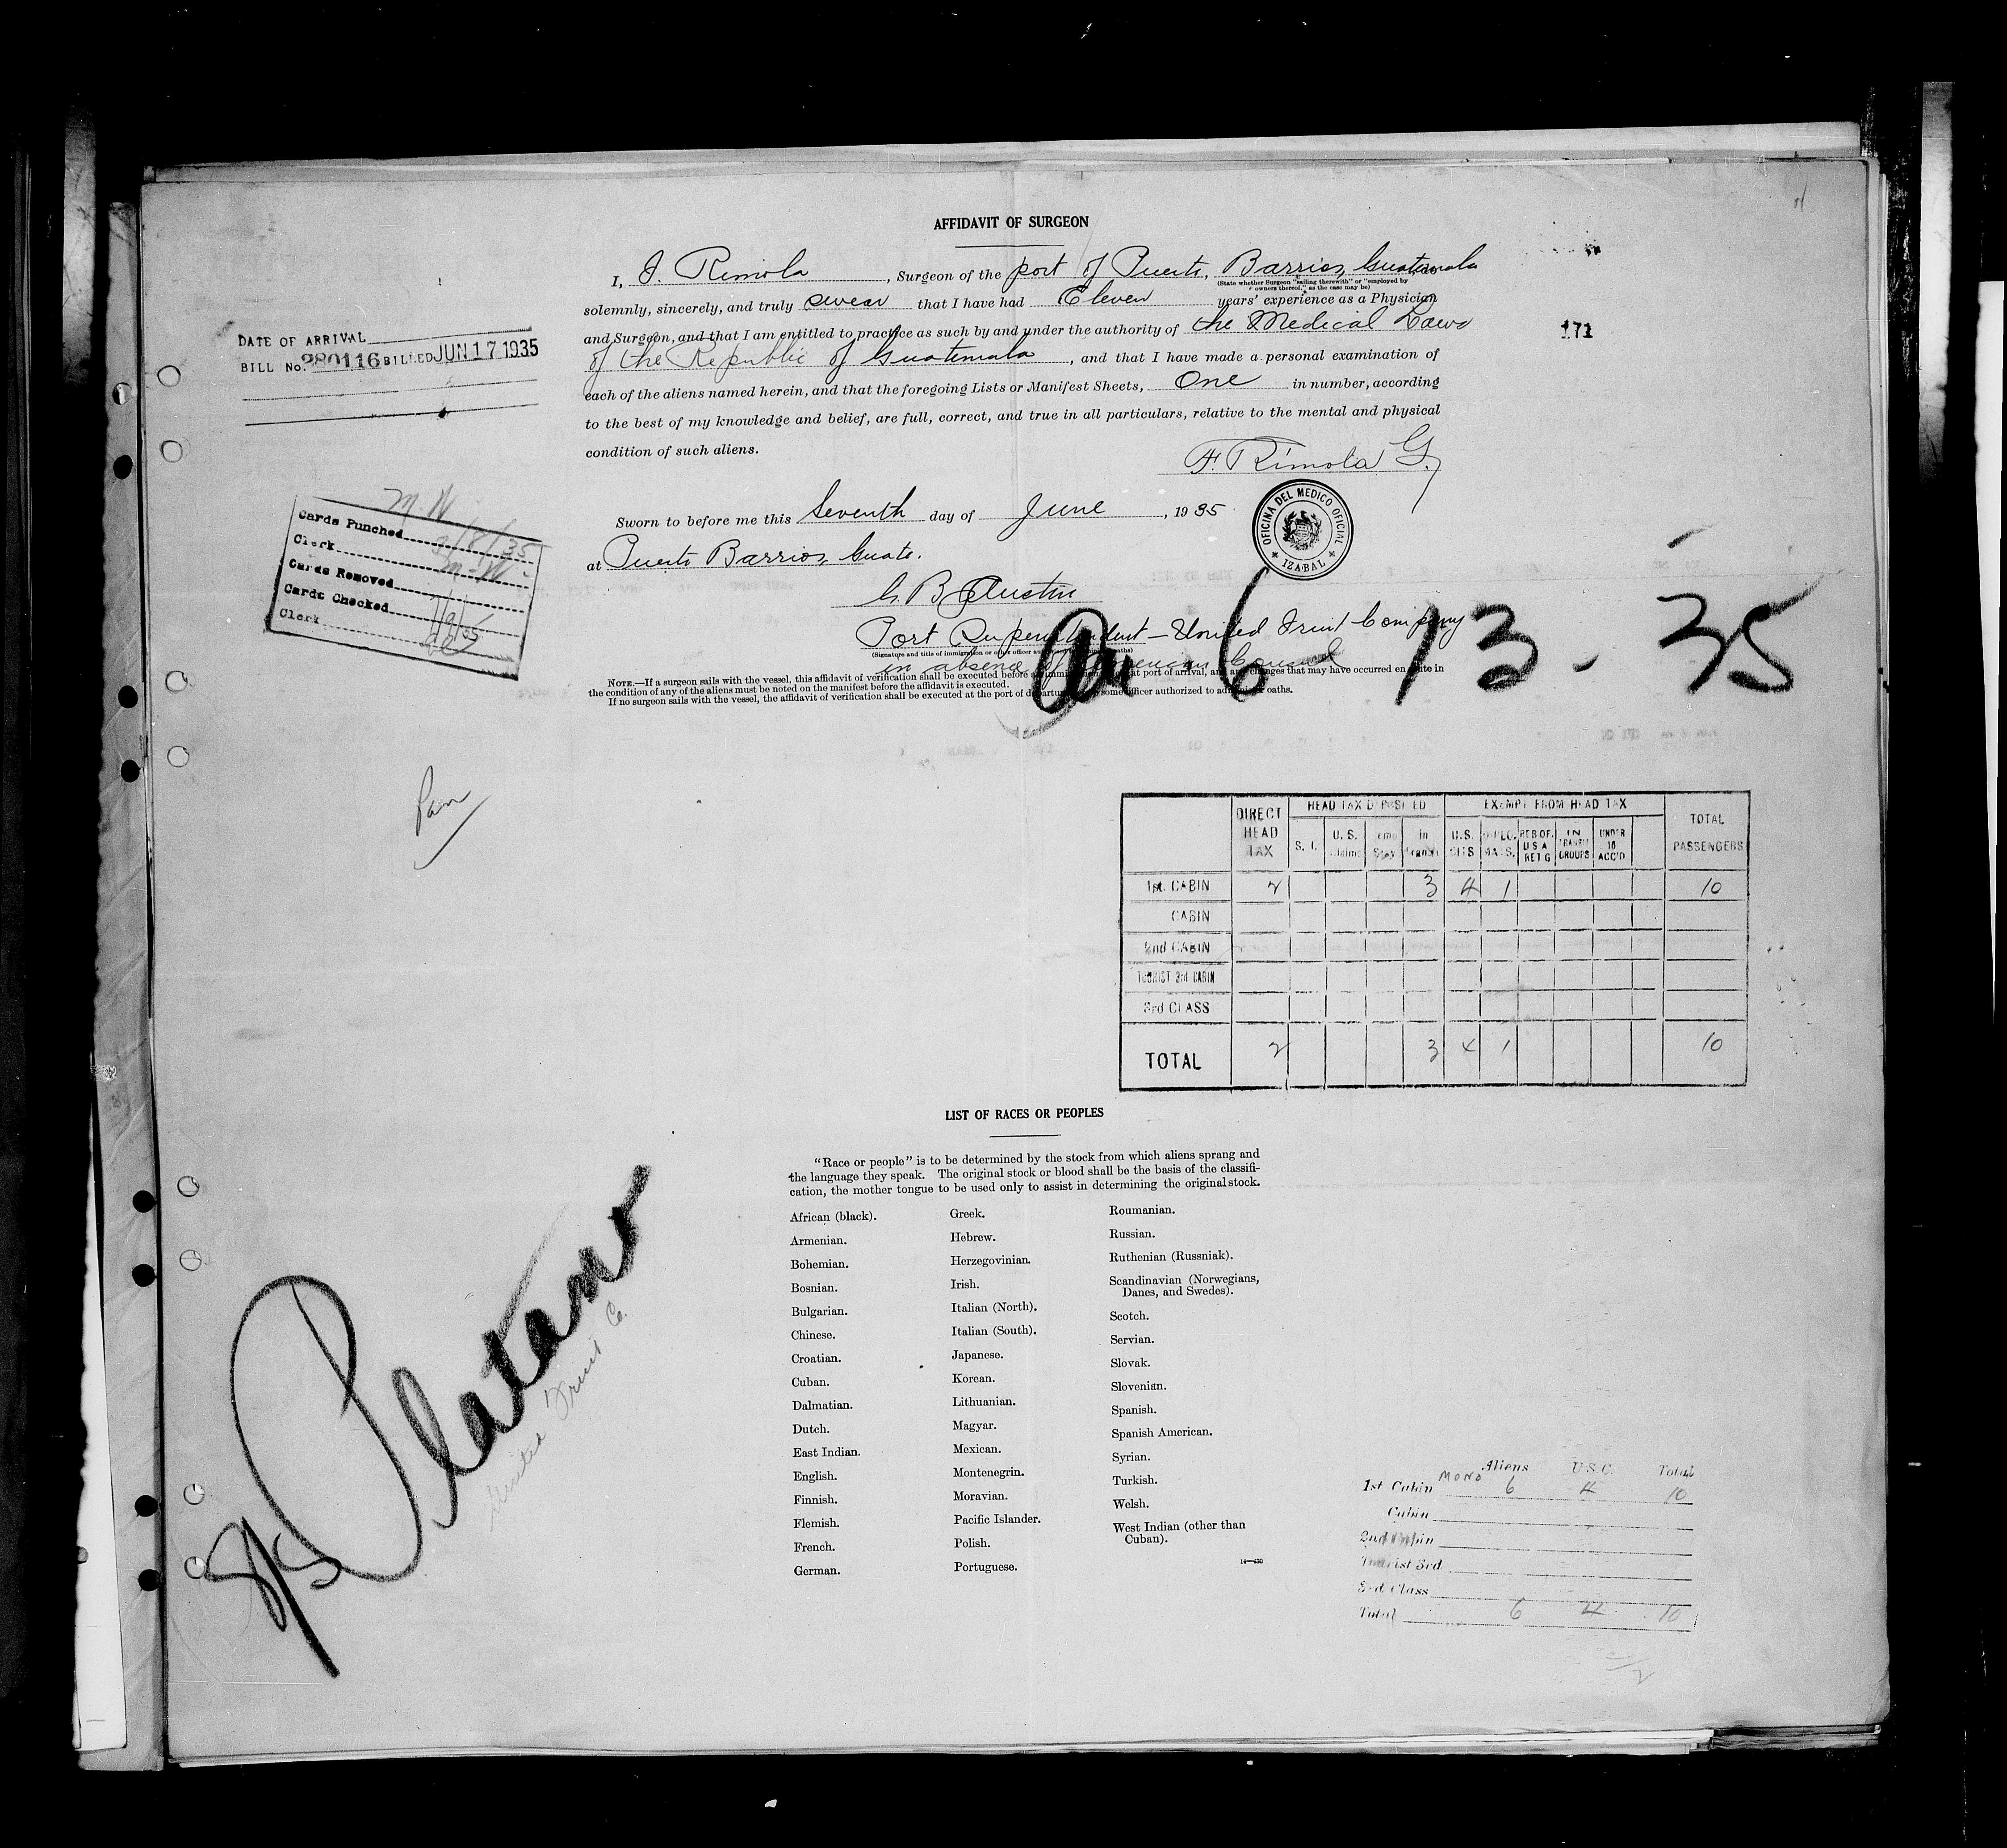 AFFIDAVIT OF SURGEON
I, F. Rimola, Surgeon of the port of Puerto Barrios, Guatemala
(State whether Surgeon "sailing therewith" or "employed by
owners thereof," as the case may be)
solemnly, sincerely, and truly swear that I have had Eleven years' experience as a Physician
and Surgeon, and that I am entitled to practice as such by and under the authority of the Medical Laws
of the Republic of Guatemala, and that I have made a personal examination of
each of the aliens named herein, and that the foregoing Lists or Manifest Sheets, One in number, according
to the best of my knowledge and belief, are full, correct, and true in all particulars, relative to the mental and physical
condition of such aliens.
F. Rimola G.
171
DATE OF ARRIVAL
BILL No. 280116 BILLED JUN 17 1935
Sworn to before me this Seventh day of June, 1935
at Puerto Barrios, Guate.
OFICINA DEL MEDICO OFICIAL
IZABAL
M. W.
Cards Punched 7/8/35
Clerk M. W.
Cards Removed
Cards Checked 7/9/35
Clerk
G. B. Austin
Port Superintendent - United Fruit Company
(Signature and title of immigration or other officer authorized to administer oaths)
in absence of American Consul
6 13 - 35
NOTE.—If a surgeon sails with the vessel, this affidavit of verification shall be executed before an immigration officer at port of arrival, and any changes that may have occurred en route in
the condition of any of the aliens must be noted on the manifest before the affidavit is executed.
If no surgeon sails with the vessel, the affidavit of verification shall be executed at the port of departure before some officer authorized to administer oaths.
DIRECT HEAD TAX HEAD TAX DEPOSITED EXEMPT FROM HEAD TAX TOTAL PASSENGERS
S. I. U. S. Claims Temp Stay In Transit U.S. CITS DIPLO. MATS. RES OF. U S A RET G IN TRANSIT GROUPS UNDER 16 ACC'D
1st. CABIN 2 3 4 1 10
CABIN
2nd CABIN
TOURIST 3rd CABIN
3rd CLASS
TOTAL 2 3 4 1 10
LIST OF RACES OR PEOPLES
"Race or people" is to be determined by the stock from which aliens sprang and
the language they speak. The original stock or blood shall be the basis of the classifi-
cation, the mother tongue to be used only to assist in determining the original stock.
African (black).
Armenian.
Bohemian.
Bosnian.
Bulgarian.
Chinese.
Croatian.
Cuban.
Dalmatian.
Dutch.
East Indian.
English.
Finnish.
Flemish.
French.
German.
Greek.
Hebrew.
Herzegovinian.
Irish.
Italian (North).
Italian (South).
Japanese.
Korean.
Lithuanian.
Magyar.
Mexican.
Montenegrin.
Moravian.
Pacific Islander.
Polish.
Portuguese.
Roumanian.
Russian.
Ruthenian (Russniak).
Scandinavian (Norwegians,
Danes, and Swedes).
Scotch.
Servian.
Slovak.
Slovenian.
Spanish.
Spanish American.
Syrian.
Turkish.
Welsh.
West Indian (other than
Cuban).
14—430
S/S Platano
United Fruit Co.
MONO Aliens U.S.C. Total
1st Cabin 6 4 10
Cabin
2nd Cabin
Tourist 3rd
3rd Class
Total 6 4 10